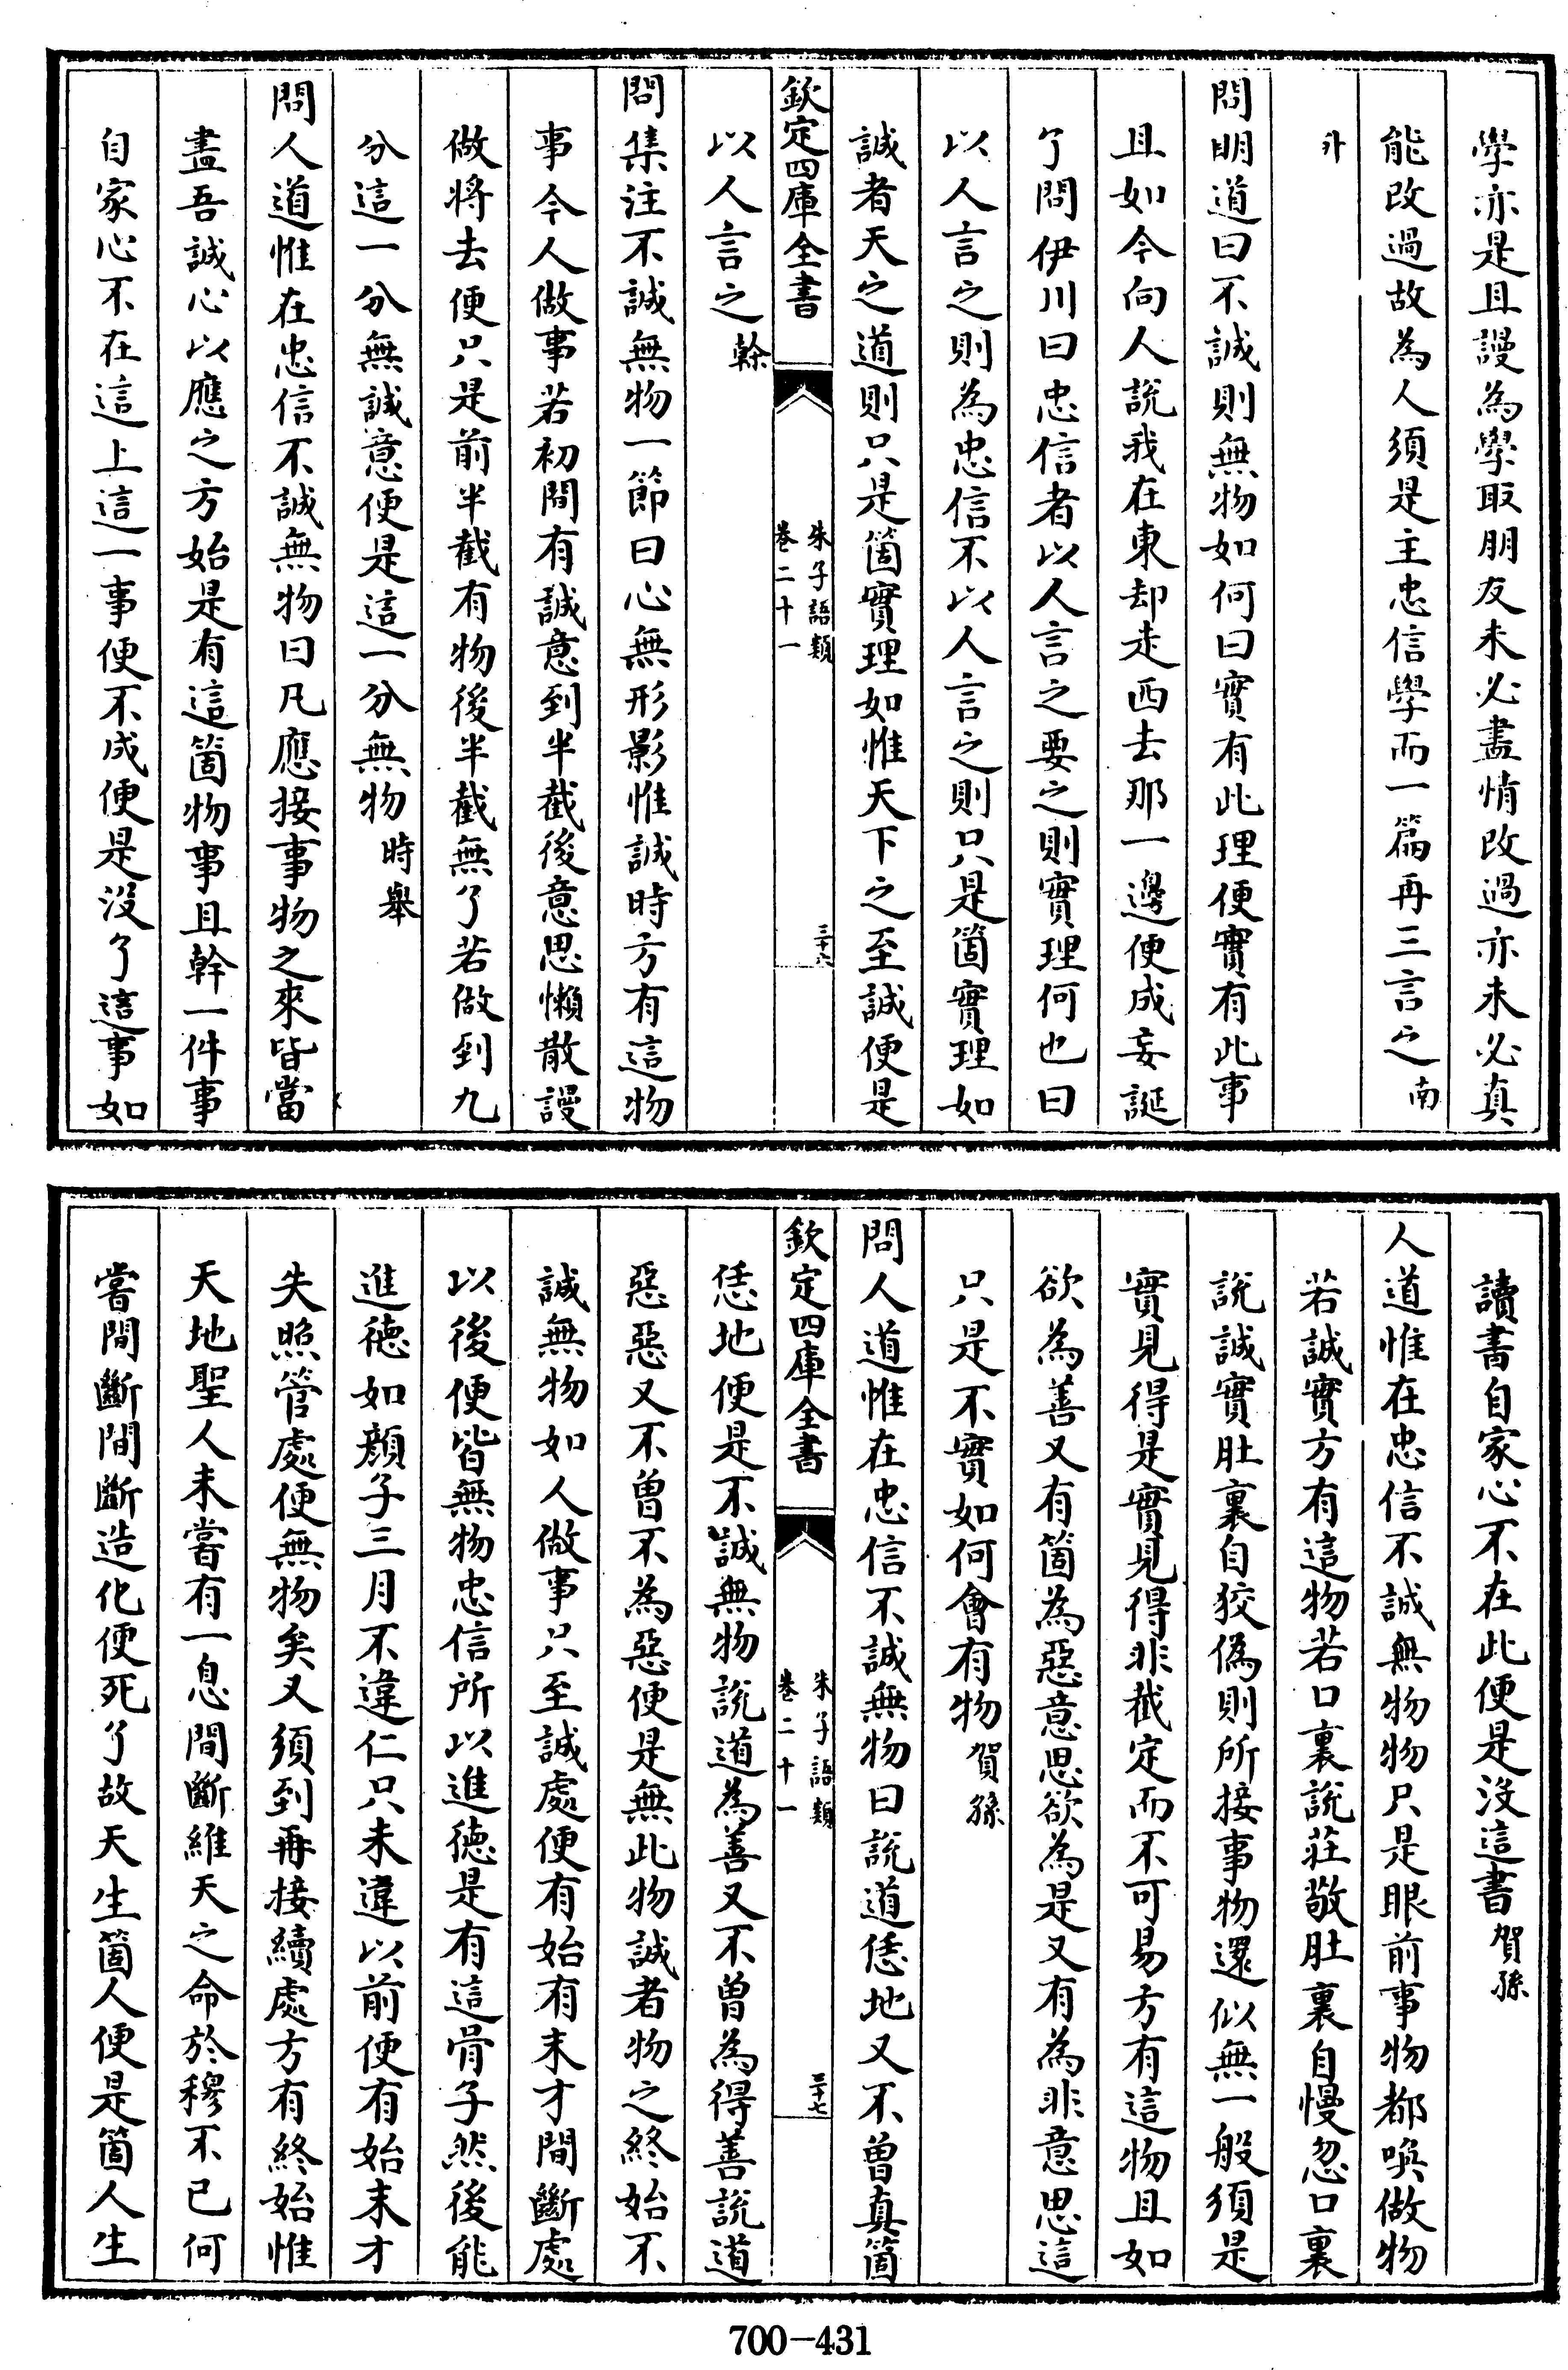 學亦是且謾為學取朋友未必盡情改過亦未必真
能改過故為人須是主忠信學而一篇再三言之南
升
問明道曰不誠則無物如何曰實有此理便實有此事
且如今向人說我在東却走西去那一邊便成妄誕
了問伊川曰忠信者以人言之要之則實理何也曰
以人言之則為忠信不以人言之則只是箇實理如
誠者天之道則只是箇實理如惟天下之至誠便是
欽定四庫全書
朱子語類
卷二十一
三十六
以人言之榦
問集注不誠無物一節曰心無形影惟誠時方有這物
事今人做事若初間有誠意到半截後意思懶散謾
做將去便只是前半截有物後半截無了若做到九
分這一分無誠意便是這一分無物時舉
問人道惟在忠信不誠無物曰凡應接事物之來皆當
盡吾誠心以應之方始是有這箇物事且幹一件事
自家心不在這上這一事便不成便是沒了這事如
讀書自家心不在此便是沒這書賀孫
人道惟在忠信不誠無物物只是眼前事物都喚做物
若誠實方有這物若口裏說莊敬肚裏自慢忽口裏
說誠實肚裏自狡偽則所接事物還似無一般須是
實見得是實見得非截定而不可易方有這物且如
欲為善又有箇為惡意思欲為是又有為非意思這
只是不實如何會有物賀孫
問人道惟在忠信不誠無物曰說道恁地又不曾真箇
欽定四庫全書
朱子語類
卷二十一
三十七
恁地便是不誠無物說道為善又不曾為得善說道
惡惡又不曾不為惡便是無此物誠者物之終始不
誠無物如人做事只至誠處便有始有末才間斷處
以後便皆無物忠信所以進德是有這骨子然後能
進德如顏子三月不違仁只未違以前便有始末才
失照管處便無物矣又須到再接續處方有終始惟
天地聖人未嘗有一息間斷維天之命於穆不已何
嘗間斷間斷造化便死了故天生箇人便是箇人生
700-431